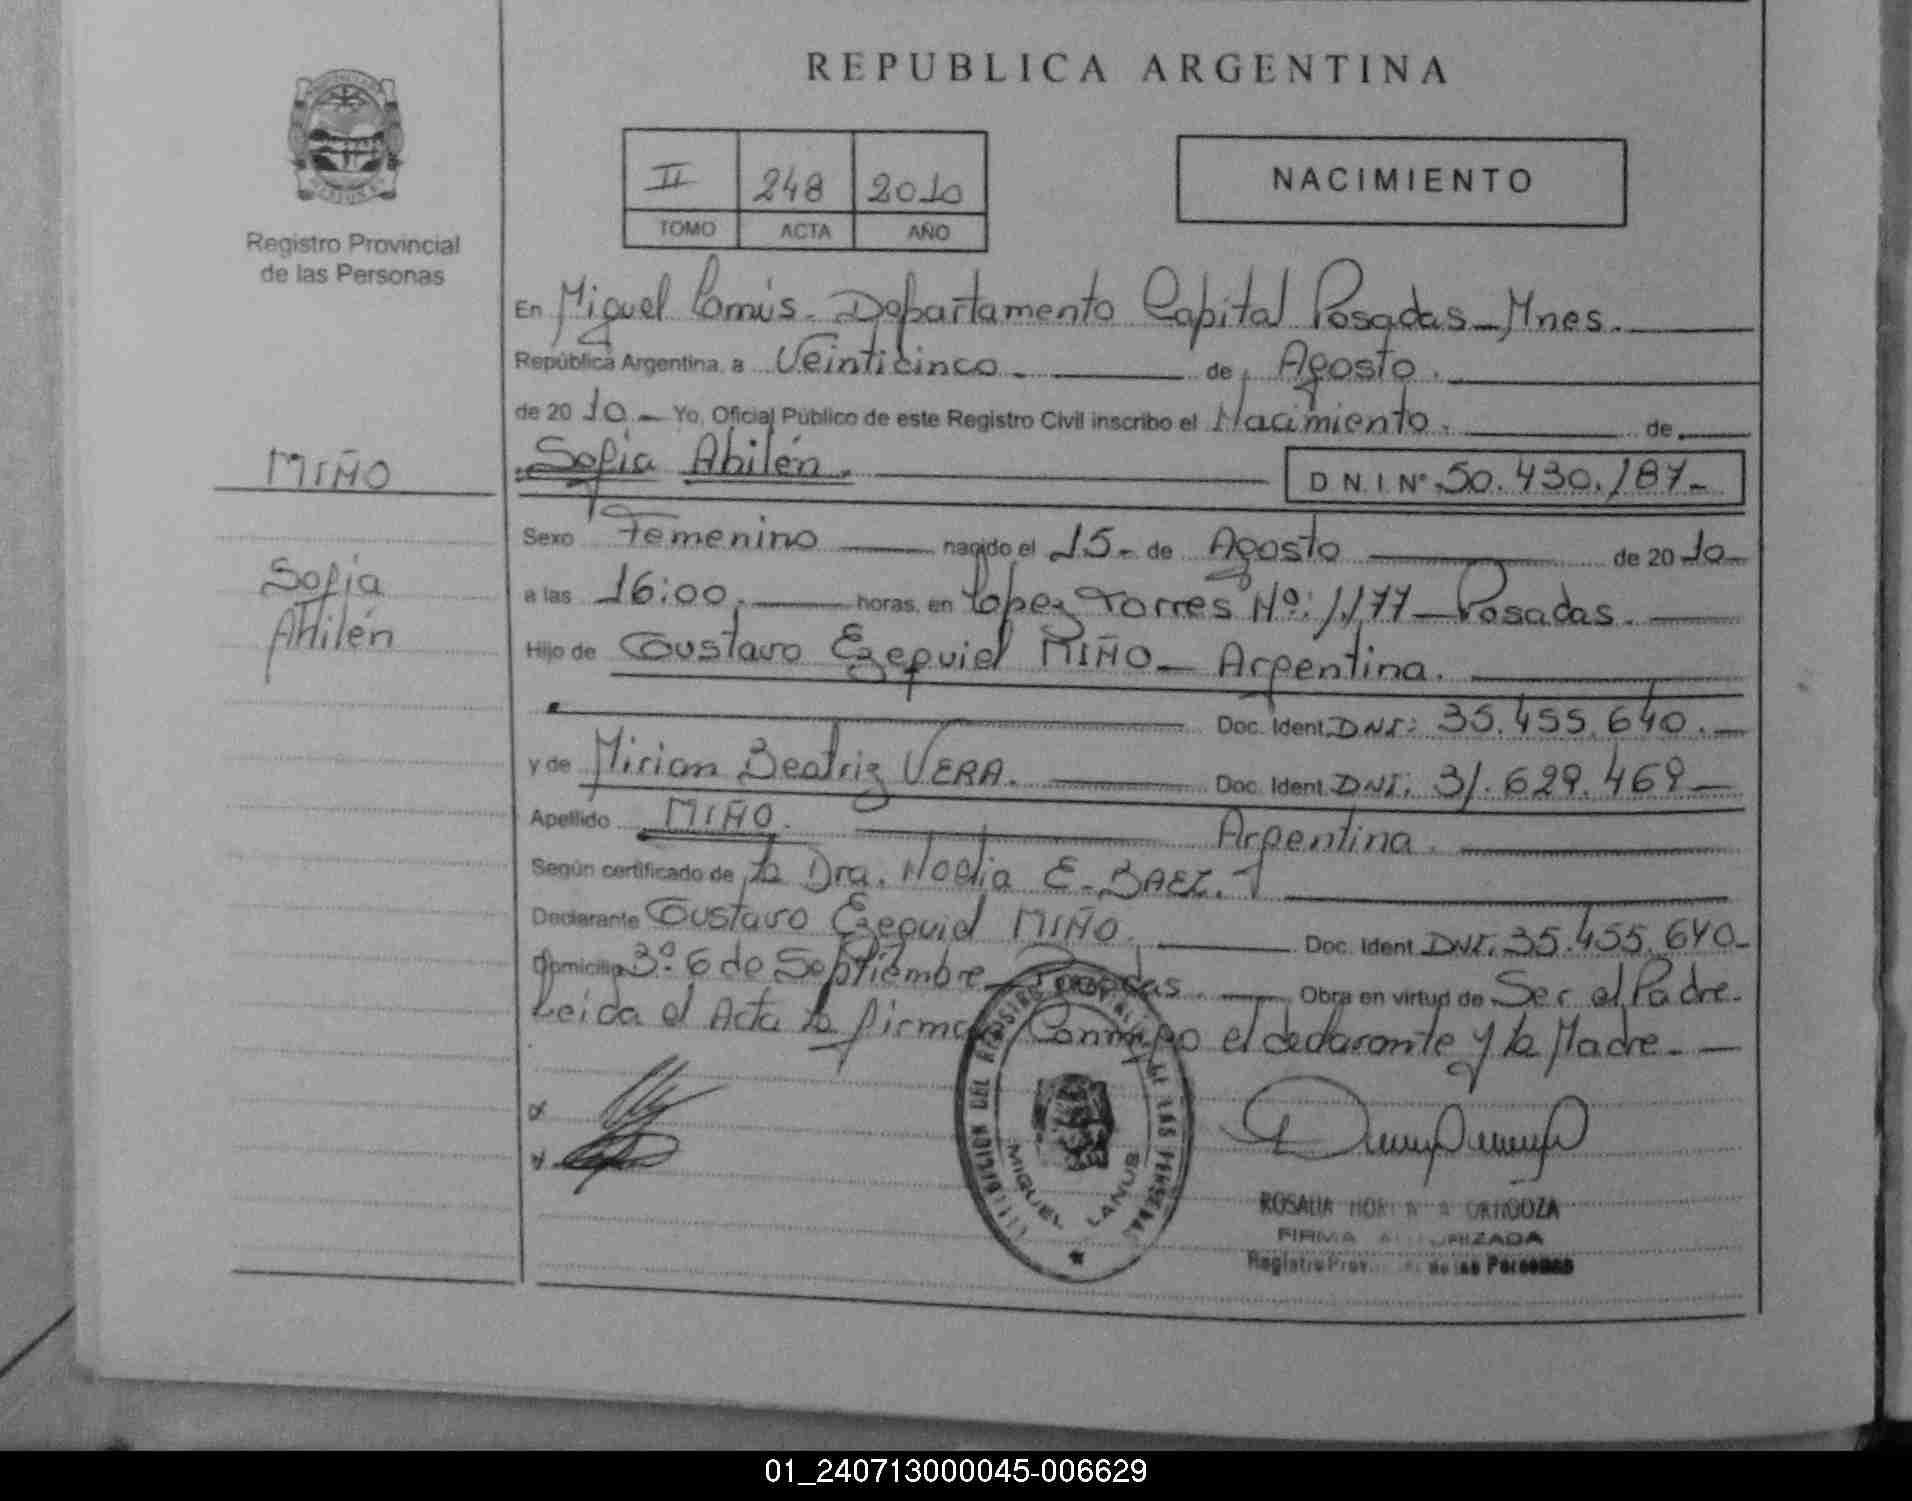 REPUBLICA ARGENTINA
II 248 2010
TOMO ACTA AÑO
NACIMIENTO
Registro Provincial
de las Personas
MIÑO
Sofia
Ahilén
En Miguel Lanús. Departamento Capital Posadas_Mnes.
República Argentina, a Veinticinco. de Agosto.
de 20 10._ Yo, Oficial Público de este Registro Civil inscribo el Nacimiento. de
Sofia Ahilén. D N. I. Nº 50.430.187_
Sexo Femenino nacido el 15_ de Agosto de 20 10_
a las 16:00. horas, en Lopez Torres Nº: 1.177_Posadas.
Hijo de Gustavo Ezequiel MIÑO_ Argentina.
Doc. Ident. DNI: 35.455.640.
y de Mirian Beatriz VERA. Doc. Ident. DNI: 31.629.469_
Apellido MIÑO. Argentina.
Según certificado de la Dra. Noelia E. BAEZ.
Declarante Gustavo Ezequiel MIÑO. Doc. Ident. DNI. 35.455.640_
Domicilio 3º. 6 de Septiembre_ Posadas. Obra en virtud de Ser el Padre.
Leida el Acta la firman Conmigo el declarante y la Madre._
DEL REGISTRO PROVINCIAL DE LAS PERSONAS
MIGUEL LANUS
ROSALIA
FIRMA AUTORIZADA
Registro Prov de las Personas
01_240713000045-006629